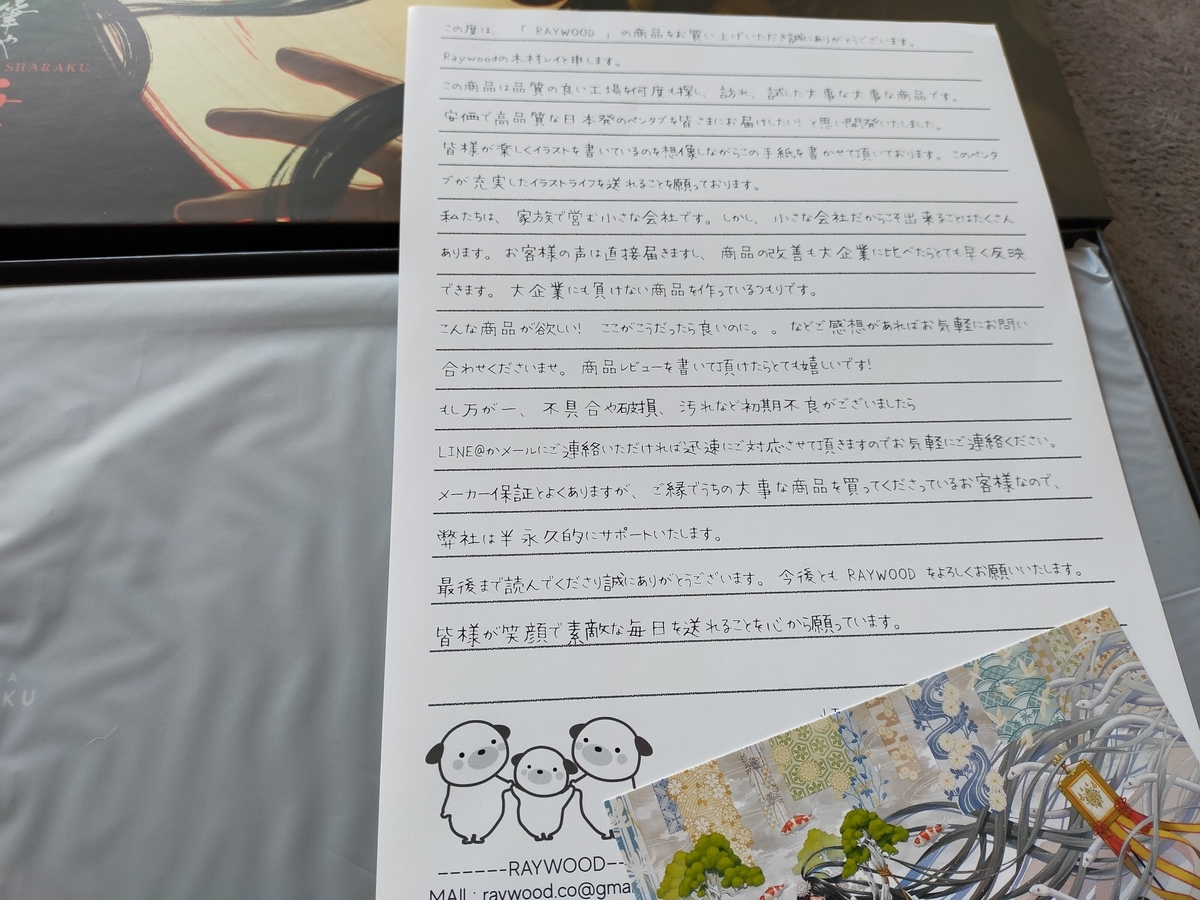 SHARAKU
この度は、 「 RAYWOOD 」 の商品をお買い上げいただき誠にありがとうございます。
Raywoodの木村レイと申します。
この商品は品質の良い工場を何度も探し、訪れ、試した大事な大事な商品です。
安価で高品質な日本発のペンタブを皆さまにお届けしたい! と思い開発いたしました。
皆様が楽しくイラストを書いているのを想像しながらこの手紙を書かせて頂いております。 このペンタ
ブが充実したイラストライフを送れることを願っております。
私たちは、 家族で営む小さな会社です。 しかし、 小さな会社だからこそ出来ることはたくさん
あります。 お客様の声は直接届きますし、 商品の改善も大企業に比べたらとても早く反映
できます。 大企業にも負けない商品を作っているつもりです。
こんな商品が欲しい! ここがこうだったら良いのに。。 などご感想があればお気軽にお問い
合わせくださいませ。 商品レビューを書いて頂けたらとても嬉しいです!
もし万が一、 不具合や破損、 汚れなど初期不良がございましたら
LINE@かメールにご連絡いただければ迅速にご対応させて頂きますのでお気軽にご連絡ください。
メーカー保証とよくありますが、 ご縁でうちの大事な商品を買ってくださっているお客様なので、
弊社は半永久的にサポートいたします。
最後まで読んでくださり誠にありがとうございます。 今後とも RAYWOOD をよろしくお願いいたします。
皆様が笑顔で素敵な毎日を送れることを心から願っています。
------RAYWOOD--
MAIL : raywood.co@gma
KU